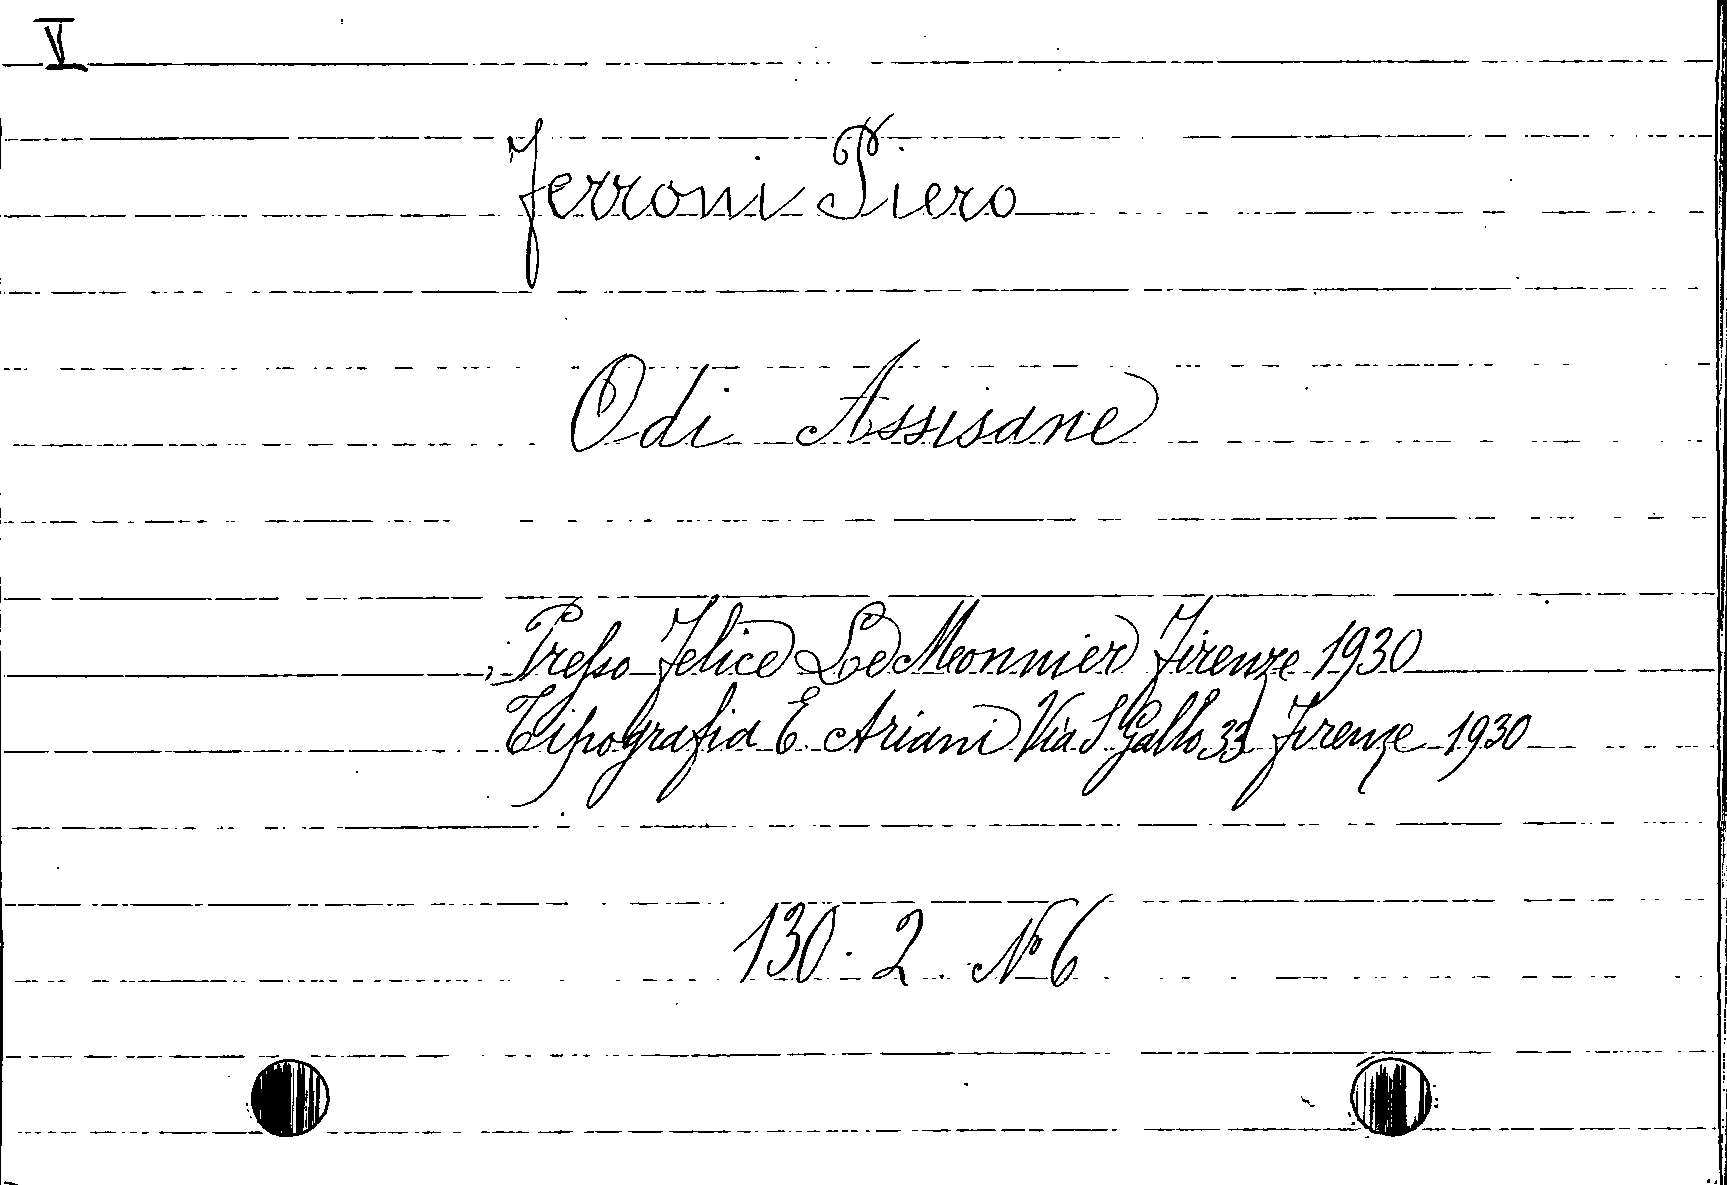 V
Ferroni Piero
Odi Assisane
Presso Felice Le Monnier Firenze 1930
Tipografia E. Ariani Via S Gallo 33 Firenze 1930
130. 2. N 6